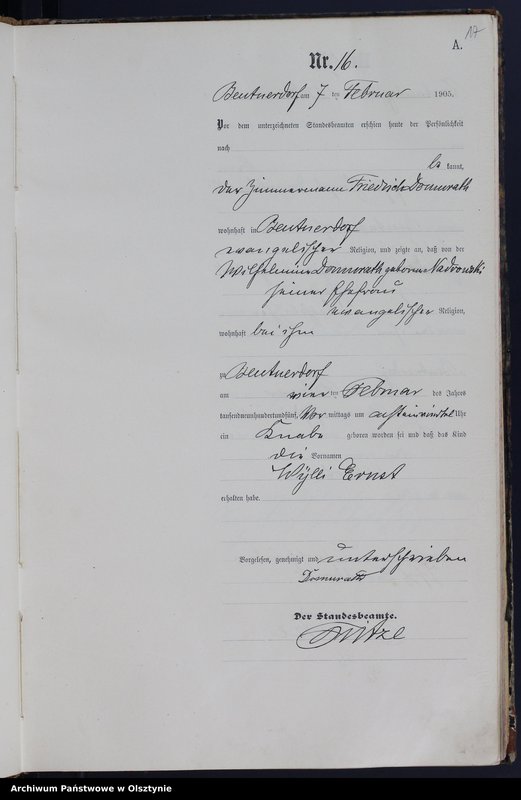 17
A.
Nr. 16.
Beutnerdorf am 7 ten Februar 1905.
Vor dem unterzeichneten Standesbeamten erschien heute der Persönlichkeit
nach
be kannt,
der Zimmermann Friedrich Domnrath
wohnhaft in Beutnerdorf
evangelischer Religion, und zeigte an, daß von der
Wilhelmine Domnrath geborene
seiner Ehefrau
evangelischer Religion,
wohnhaft bei ihm
zu Beutnerdorf
am vier ten Februar des Jahres
tausendneunhundertundfünf, Vor mittags um acht einviertel Uhr
ein Knabe geboren worden sei und daß das Kind
die Vornamen
Willi Ernst
erhalten habe.
Vorgelesen, genehmigt und unterschrieben
Domnrath
Der Standesbeamte.
Archiwum Państwowe w Olsztynie